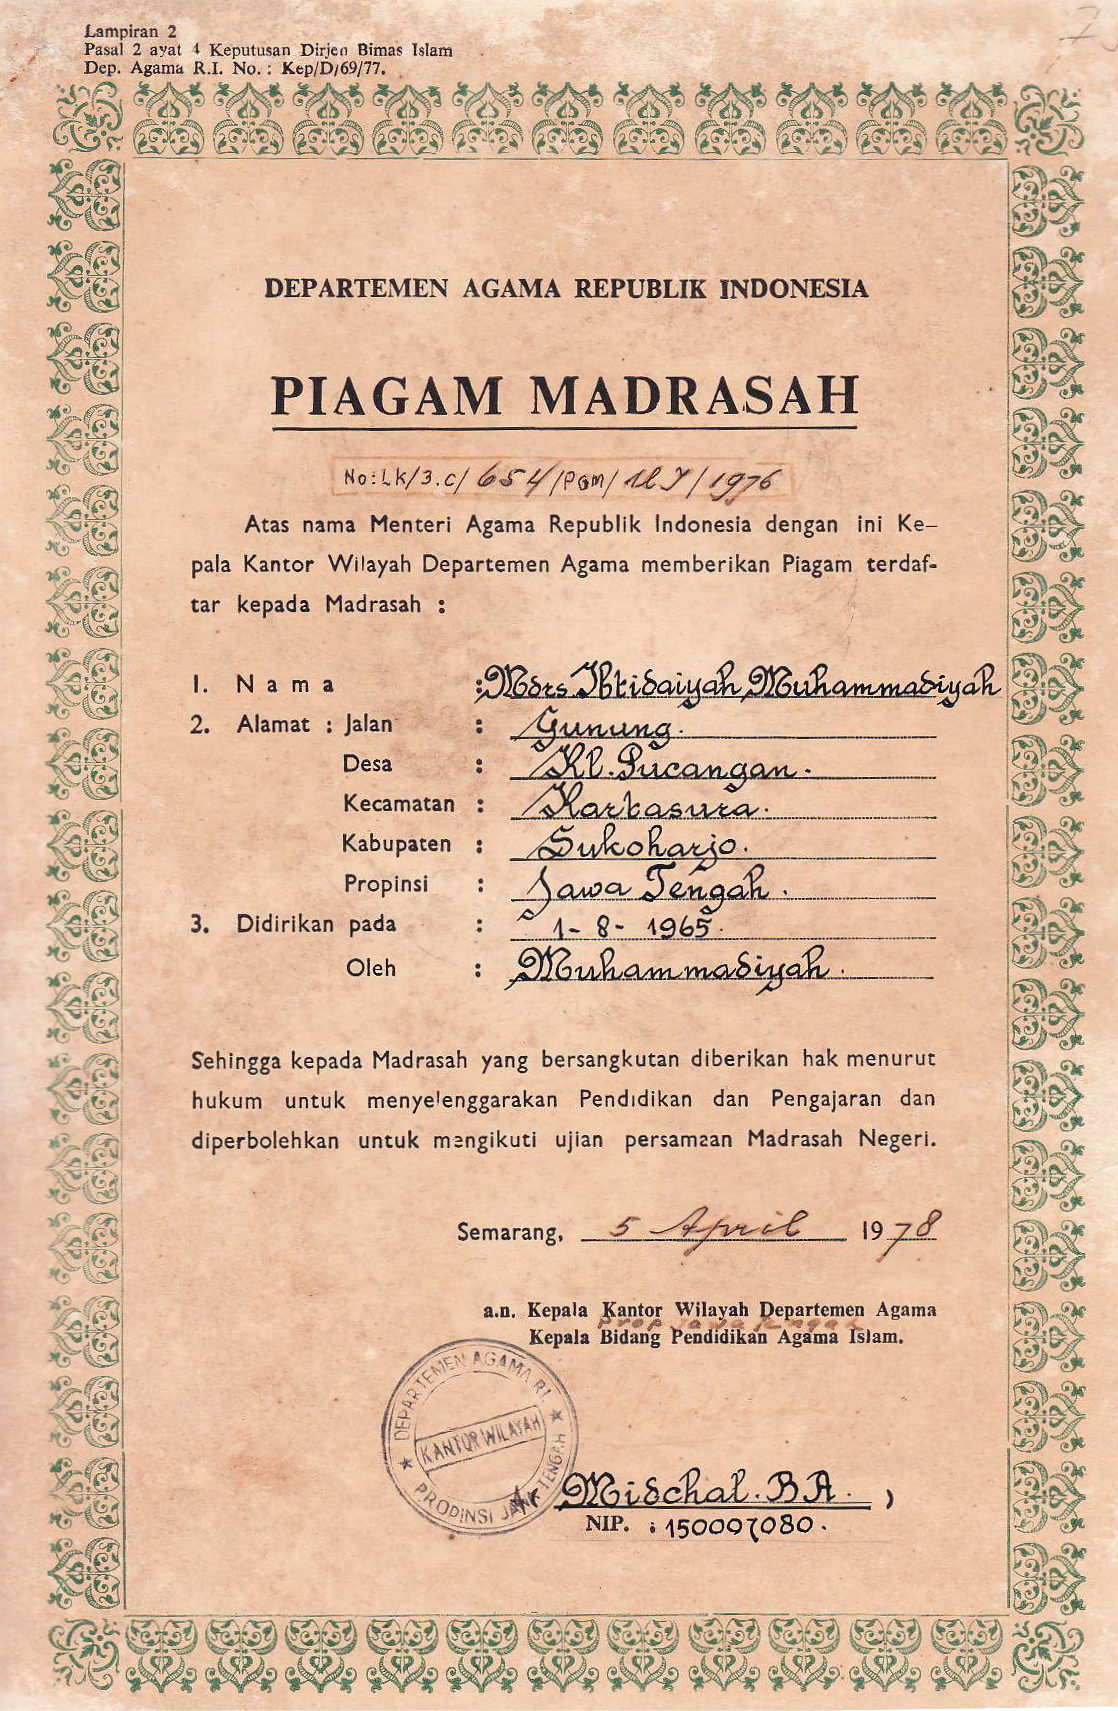 Lampiran 2
Pasal 2 ayat 4 Keputusan Dirjen Bimas Islam
Dep. Agama R.I. No. : Kep/D/69/77.
DEPARTEMEN AGAMA REPUBLIK INDONESIA
PIAGAM MADRASAH
No:Lk/3.c/654/PGM/ /1976
Atas nama Menteri Agama Republik Indonesia dengan ini Ke-
pala Kantor Wilayah Departemen Agama memberikan Piagam terdaf-
tar kepada Madrasah :
1. Nama : Mdrs Ibtidaiyah Muhammadiyah
2. Alamat : Jalan : Gunung.
Desa : Kl. Pucangan.
Kecamatan : Kartasura.
Kabupaten : Sukoharjo.
Propinsi : Jawa Tengah.
3. Didirikan pada : 1-8-1965.
Oleh : Muhammadiyah.
Sehingga kepada Madrasah yang bersangkutan diberikan hak menurut
hukum untuk menyelenggarakan Pendidikan dan Pengajaran dan
diperbolehkan untuk mengikuti ujian persamaan Madrasah Negeri.
Semarang, 5 April 1978
a.n. Kepala Kantor Wilayah Departemen Agama
Prop Jawa Tengah
Kepala Bidang Pendidikan Agama Islam.
DEPARTEMEN AGAMA R.I.
KANTOR WILAYAH
PROPINSI JAWA TENGAH
Midchal. BA. )
NIP. : 150007080.